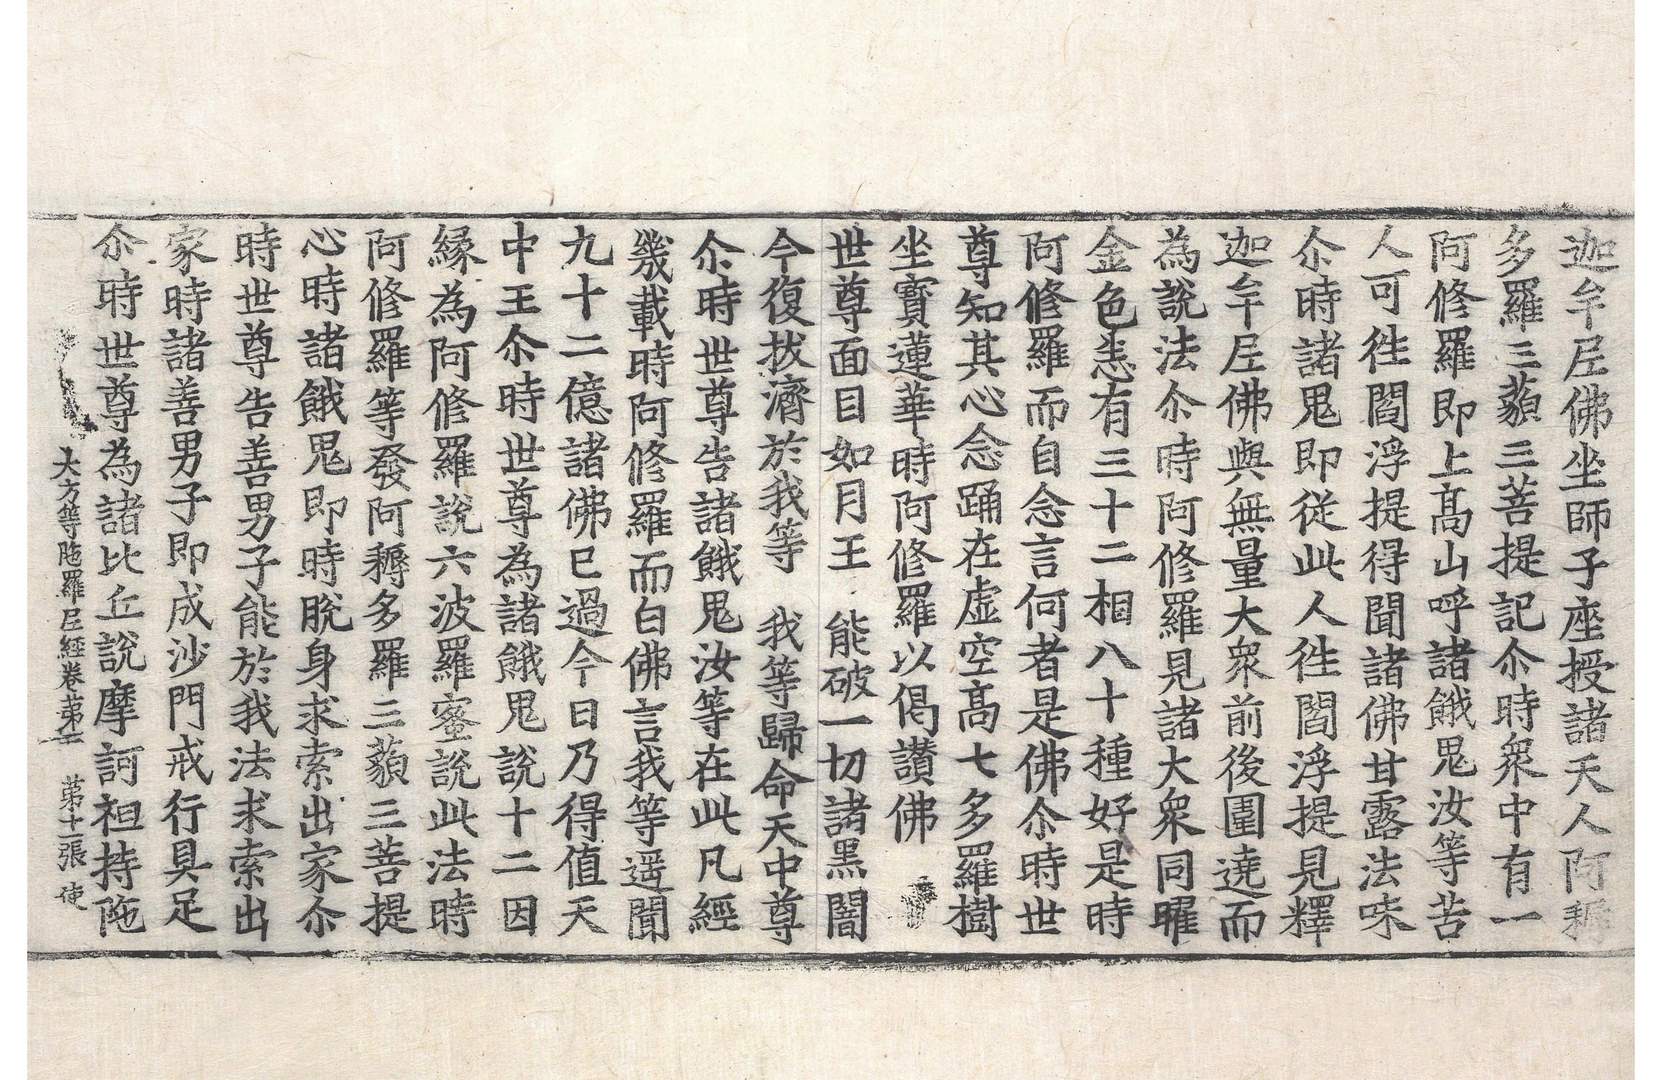 迦牟尼佛坐師子座授諸天人阿耨
多羅三藐三菩提記尒時衆中有一
阿修羅即上髙山呼諸餓鬼汝等苦
人可徃閻浮提得聞諸佛甘露法味
尒時諸鬼即從此人徃閻浮提見釋
迦牟尼佛與無量大衆前後圍遶而
為說法尒時阿修羅見諸大衆同曜
金色悉有三十二相八十種好是時
阿修羅而自念言何者是佛尒時世
尊知其心念踊在虛空髙七多羅樹
坐寶蓮華時阿修羅以偈讃佛
世尊面目如月王　能破一切諸黑闇
今復拔濟於我等　我等歸命天中尊
尒時世尊告諸餓鬼汝等在此凡經
幾載時阿修羅而白佛言我等遥聞
九十二億諸佛已過今日乃得值天
中王尒時世尊為諸餓鬼說十二因
緣為阿修羅說六波羅蜜說此法時
阿修羅等發阿耨多羅三藐三菩提
心時諸餓鬼即時脫身求索出家尒
時世尊告善男子能於我法求索出
家時諸善男子即成沙門戒行具足
尒時世尊為諸比丘說摩訶袒持陁
大方等陁羅尼經卷苐二　苐十二張　使